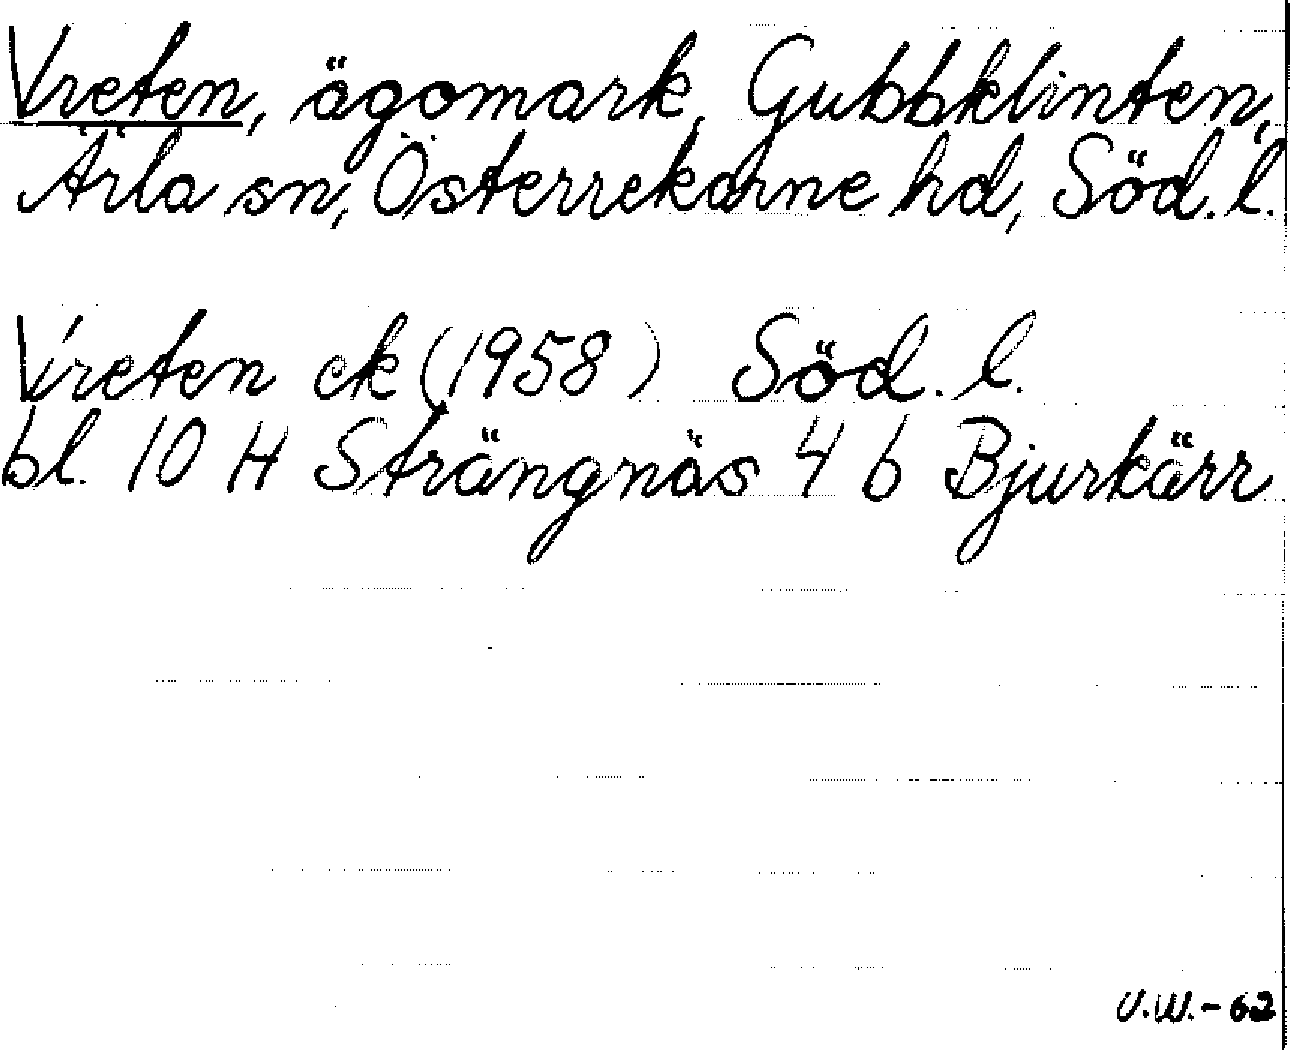 Vreten, ägomark, Gubbklinten,
Ärla sn, Österrekarne hd, Söd. l.
Vreten ek (1958) Söd. l.
bl. 10 H Strängnäs 4 b Bjurkärr
U.W.-62